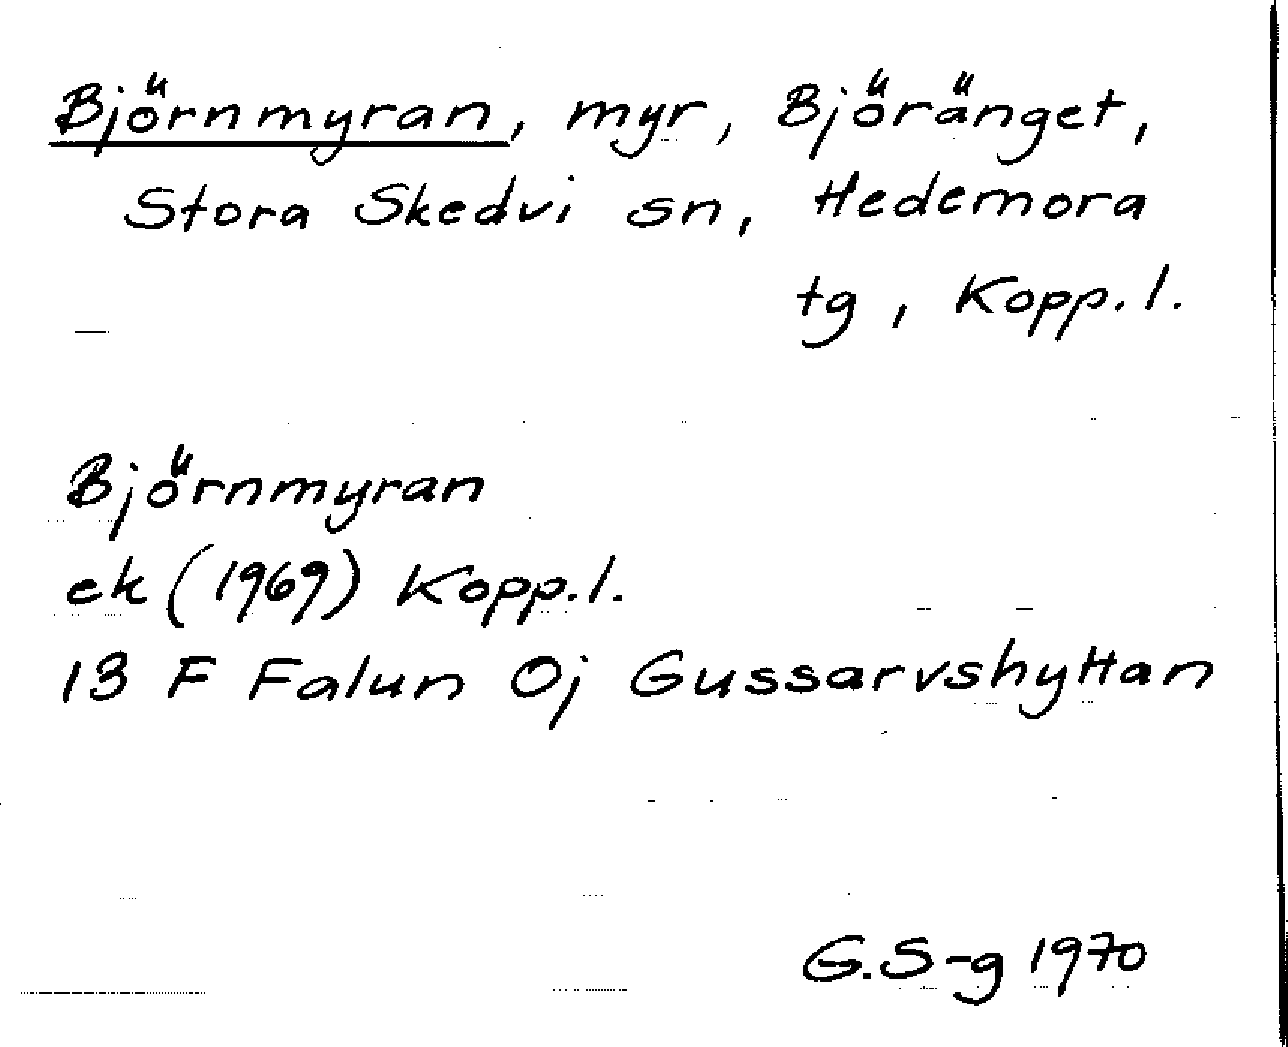 Björnmyran, myr, Björänget,
Stora Skedvi sn, Hedemora
tg, Kopp.l.
Björnmyran
ek (1969) Kopp.l.
13 F Falun Oj Gussarvshyttan
G.S-g 1970